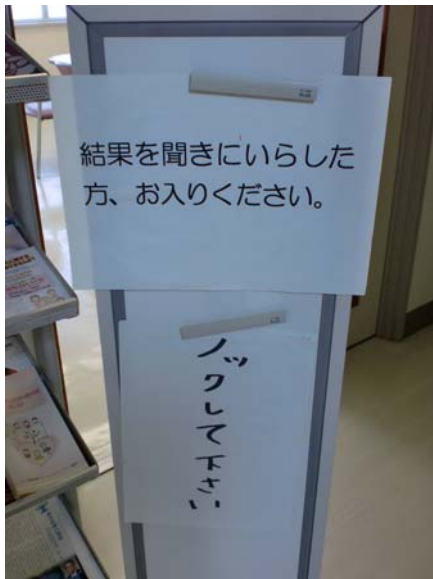 結果を聞きにいらした
方、お入りください。
ノックして下さい